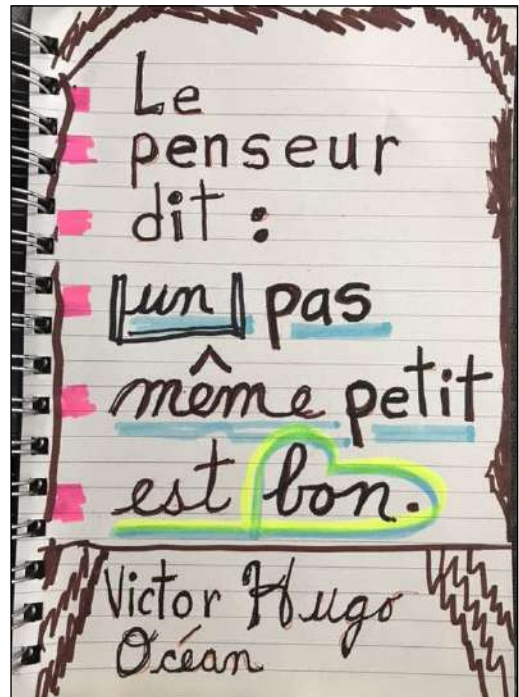 Le
penseur
dit :
un pas
même petit
est bon.
Victor Hugo
Océan